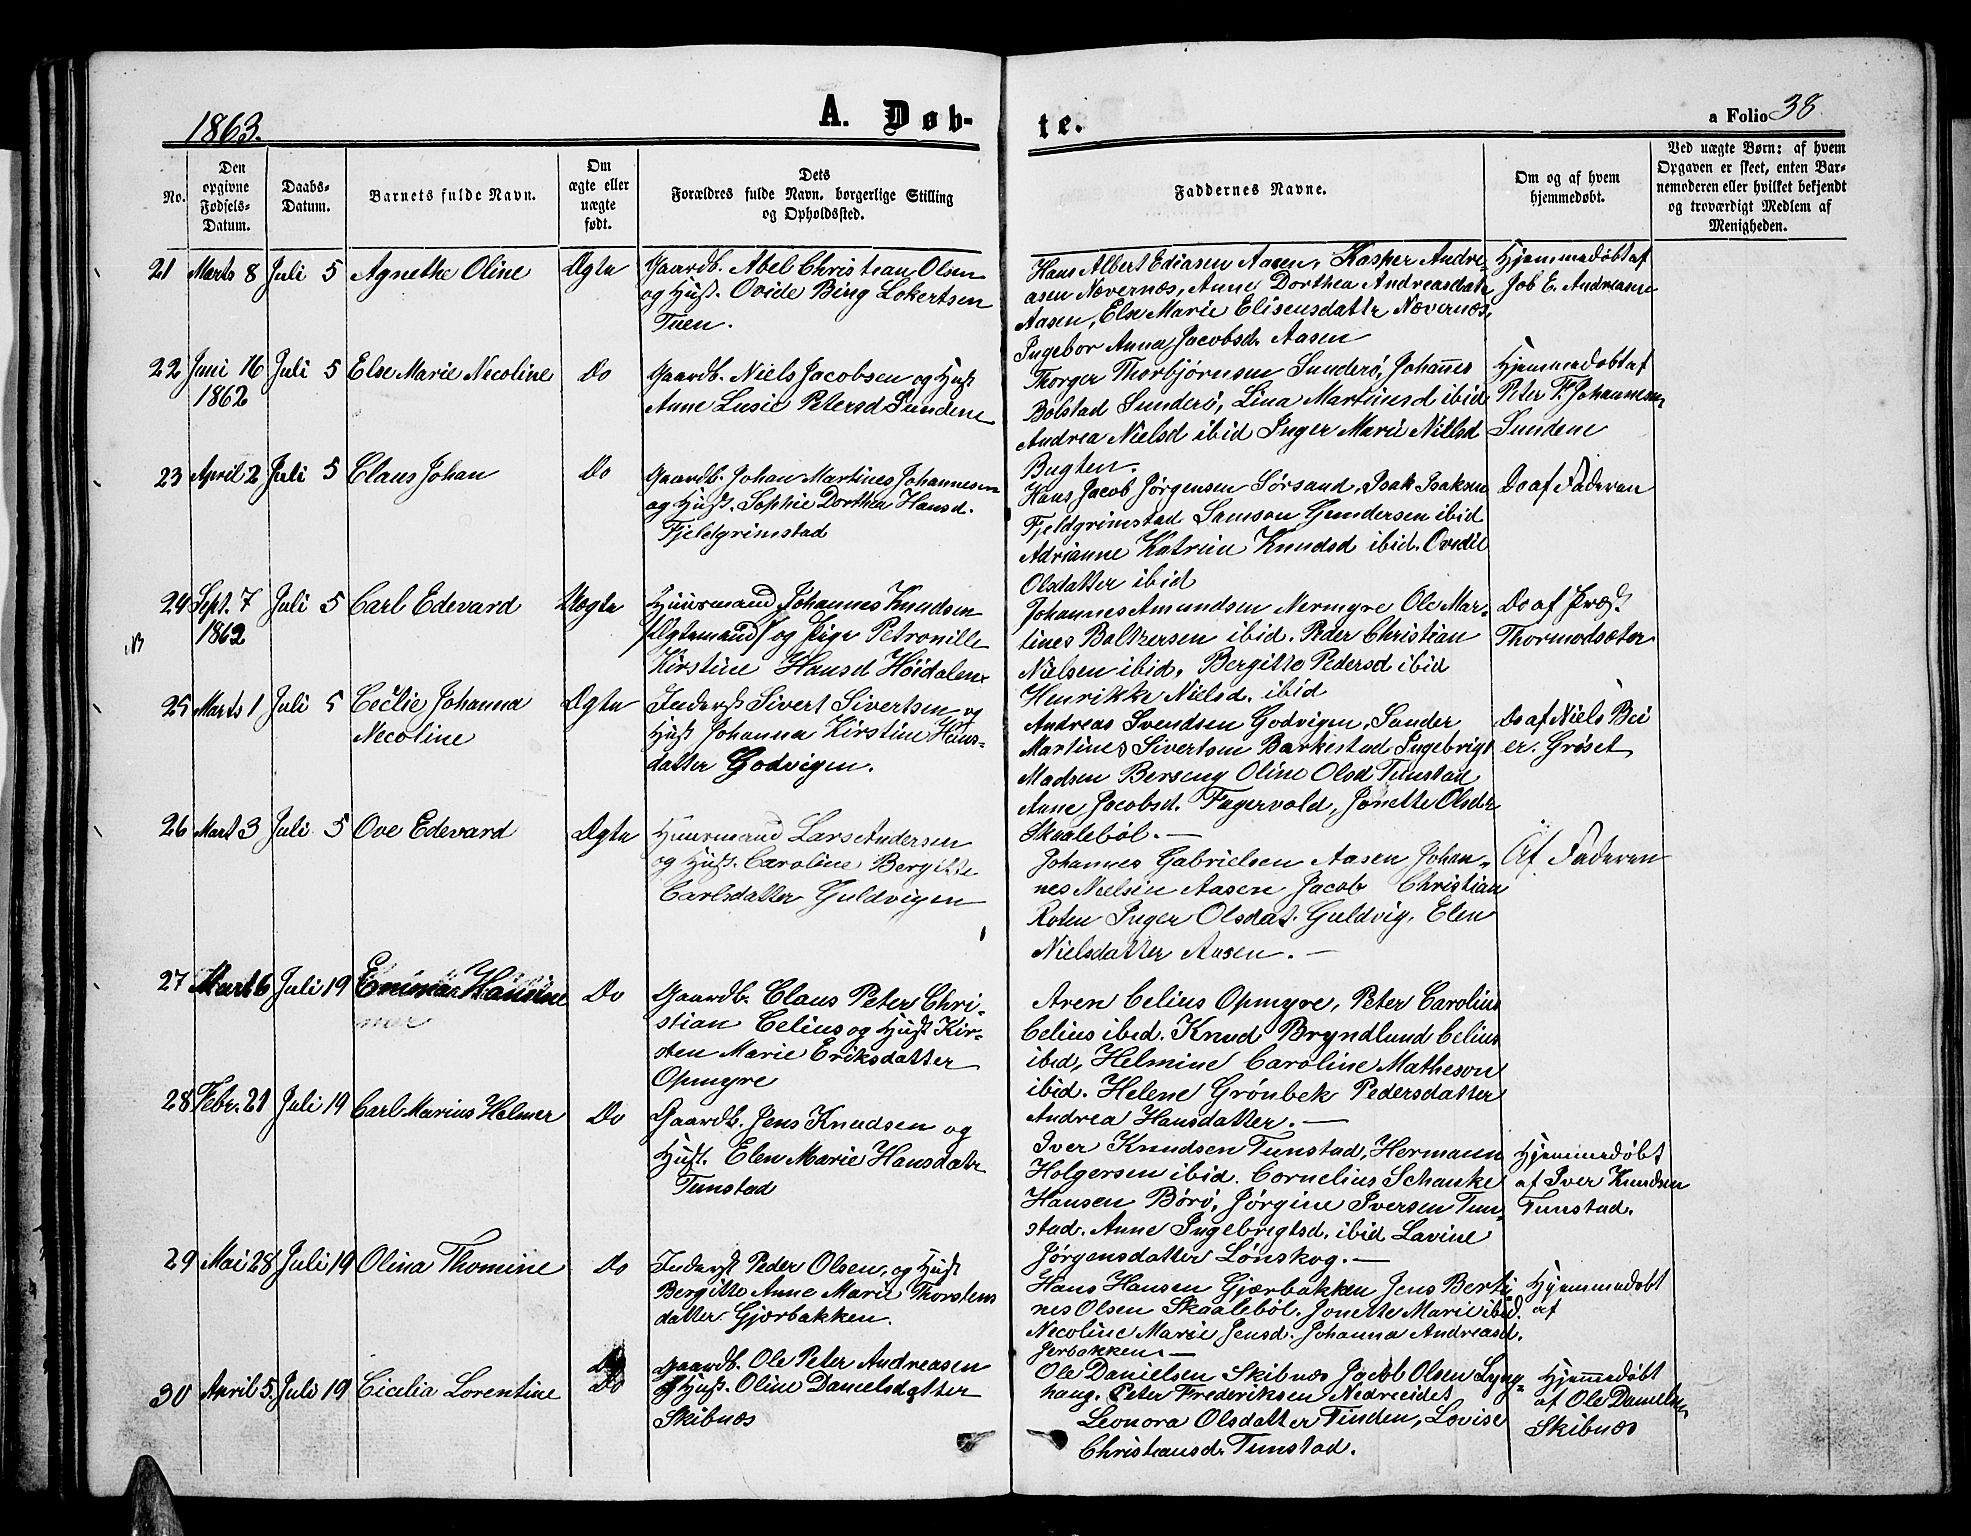 1863.
A. Døb-
te.
a Folio 38.
No.
Den opgivne Fødsels-Datum.
Daabs-Datum.
Barnets fulde Navn.
Om ægte eller uægte født.
Dets Forældres fulde Navn, borgerlige Stilling og Opholdssted.
Faddernes Navne.
Om og af hvem hjemmedøbt.
Ved uægte Børn: af hvem Opgaven er skeet, enten Barnemoderen eller hvilket bekjendt og troværdigt Medlem af Menigheden.
21 Marts 8 Juli 5 Agnethe Oline Ægte
Gaardb. Abel Christian Olsen
og Hust. Ovide Bing Lokertsen
Tuen.
Hans Albert Ediasen Aasen, Kasper Andre-
asen Nævernæs, Anne Dorthea Andreasdatr
Aasen, Else Marie Elisensdattr Nævernæs,
Ingebor Anna Jacobsd. Aasen
Hjemmedøbt af
Job E. Andreasen
22 Juni 16 Juli 5 Else Marie Necoline Do
1862
Gaardb. Niels Jacobsen og Hust
Anne Lusie Petersd Sundene
Thorger Thorbjørnsen Sunderö, Johannes
Bolstad Sunderö, Lina Martinusd ibid
Andrea Nielsd ibid Inger Marie Nielsd
Bugten.
Hjemmedøbt af
Peter F. Johannesen
Sundene
23 April 2 Juli 5 Claus Johan Do
Gaardb. Johan Martines Johannesen
og Hust. Sophie Dorthea Hansd.
Fjeldgrimstad
Hans Jacob Jörgensen Sörsand, Isak Isaksen
Fjeldgrimstad Samson Gundersen ibid
Adrianne Katrine Knudsd ibid. Ovedie
Olsdatter ibid
Do af Faderen
24 Sept. 7 Juli 5 Carl Edevard Uægte
1862
Huusmand Johannes Knudsen
(Ægtemand) og Pige Petronille
Kirstine Hansd Höidalen
Johannes Amundsen Nermyre Ole Mar-
tines Baltzersen ibid. Peder Christian
Nielsen ibid, Bergitte Pedersd ibid
Henrikke Nielsd. ibid
Do af Præst.
Thormodsæter
25 Marts 1 Juli 5 Cecilie Johanna Ægte
Necoline
Inderst Sivert Sivertsen og
Hust Johanna Kirstine Hans-
datter Godvigen.
Andreas Svendsen Godvigen, Sander
Martines Sivertsen Barkestad Ingebrigt
Madsen Berseng Oline Olsd Tunstad
Ane Jacobsd. Fagervold, Jonette Olsdr
Skaaleböl.—
Do af Niels Bei
er. Gröset
26 Mart 3 Juli 5 Ove Edevard Ægte
Huusmand Lars Andersen
og Hust. Caroline Bergitte
Carlsdatter Guldvigen
Johannes Gabrielsen Aasen Johan-
nes Nielsen Aasen Jacob Christian
Roten Inger Olsdat. Guldvig, Elen
Nielsdatter Aasen. —
Af Faderen
27 Mart 6 Juli 19 Emma Hansine Do
Gaardb. Claus Peter Chri-
stian Celius og Hust Kir-
sten Marie Eriksdatter
Opmyre
Aren Celius Opmyre, Peter Carolius
Celius ibid. Knud Bryndlund Celius
ibid, Helmine Caroline Matheson
ibid. Helene Grönbek Pedersdatter
Andrea Hansdatter. —
28 Febr. 21 Juli 19 Carl Marius Helmer Do
Gaardb. Jens Knudsen og
Hust. Elen Marie Hansdatr
Tunstad
Iver Knudsen Tunstad, Hermann
Holgersen ibid. Cornelius Schanke
Hansen Börö, Jörgine Iversen Tun-
stad. Anne Ingebregtsd. ibid Lavine
Jörgensdatter Lönskog. —
Hjemmedøbt
af Iver Knudsen
Tunstad.
29 Mai 28 Juli 19 Olina Thomine Do
Inderst Peder Olsen, og Hust
Bergitte Anne Marie Thorstens
datter Gjærbakken.
Hans Hansen Gjærbakken Jens Berti-
nes Olsen Skaaleböl. Jonette Marie ibid.
Necoline Marie Jensd. Johanna Andreasd.
Jerbakken. —
Hjemmedøbt
af
30 April 5. Juli 19 Cicelia Lorentine Do
Gaardb. Ole Peter Andreasen
og Hust. Oline Danielsdatter
Skibnæs
Ole Danielsen Skibnæs Jacob Olsen Lyng-
haug. Peter Frederiksen Nedreeidet
Leonora Olsdatter Tinden, Lovise
Christiansd. Tunstad.
Hjemmedøbt
af Ole Danielsen
Skibnæs